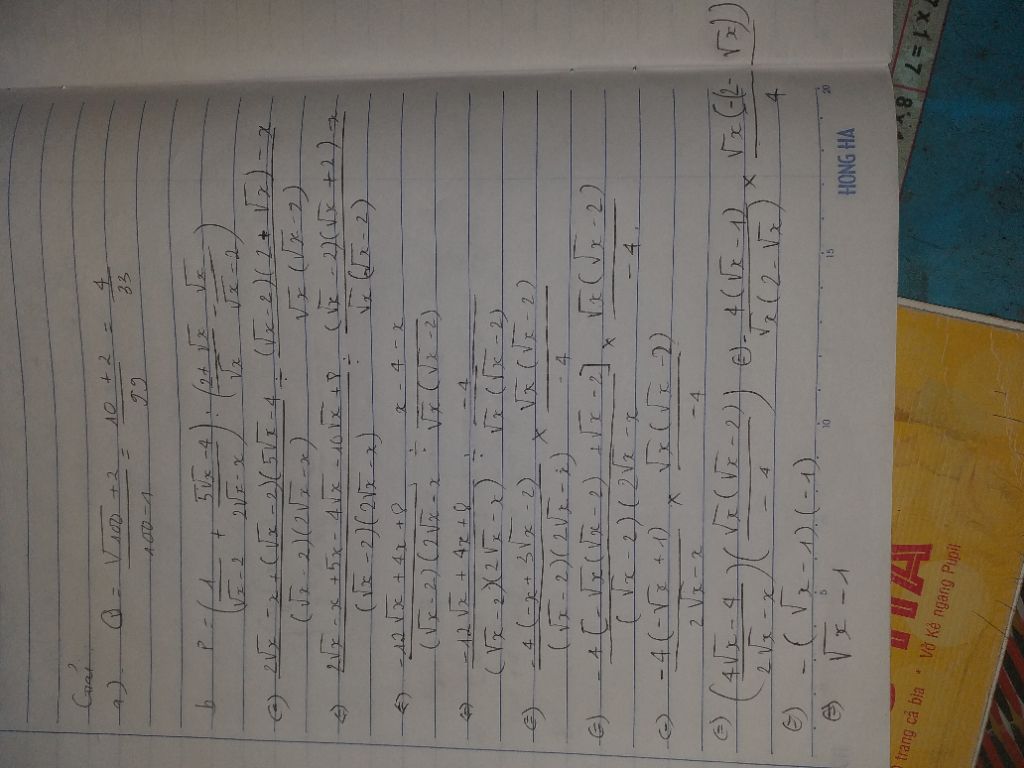 Câu 1
a) Q = √100 + 2 / 100 - 1 = 10 + 2 / 99 = 4 / 33
b P = (1 / √x - 2 + 5√x - 4 / 2√x - x) : (2 + √x / √x - √x / √x - 2)
(=) 2√x - x + (√x - 2)(5√x - 4 / (√x - 2)(2√x - x) ÷ (√x - 2)(2 + √x) - x / √x (√x - 2)
(=) 2√x - x + 5x - 4√x - 10√x + 8 / (√x - 2)(2√x - x) ÷ (√x - 2)(√x + 2) - x / √x (√x - 2)
(=) -12√x + 4x + 8 / (√x - 2)(2√x - x ÷ x - 4 - x / √x (√x - 2)
(=) -12√x + 4x + 8 / (√x - 2)(2√x - x) ÷ -4 / √x (√x - 2)
(=) -4 (-x + 3√x - 2) / (√x - 2)(2√x - x) × √x (√x - 2) / -4
(=) -4 [-√x (√x - 2) + √x - 2] / (√x - 2)(2√x - x × √x (√x - 2) / -4
(=) -4 (-√x + 1) / 2√x - x × √x (√x - 2) / -4
(=) (4√x - 4 / 2√x - x) (√x (√x - 2) / -4) (=) - 4 (√x - 1) / √x (2 - √x) × √x (-(2 - √x)) / 4
(=) - (√x - 1) (-1)
(=) √x - 1
5 10 15 20
HONG HA
trang cả bìa • Vở Kẻ ngang Pupil
7 x 1 = 7